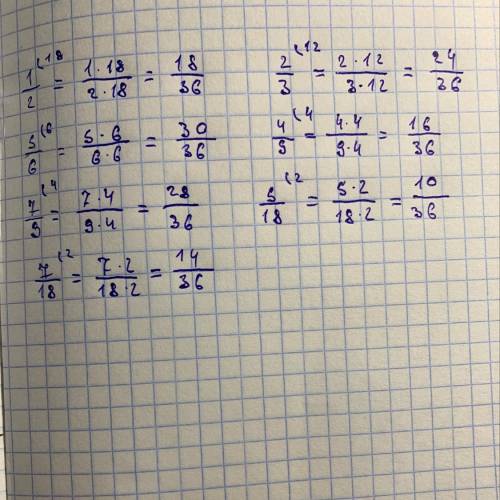 1/2 (18 = 1·18/2·18 = 18/36
2/3 (12 = 2·12/3·12 = 24/36
5/6 (6 = 5·6/6·6 = 30/36
4/9 (4 = 4·4/9·4 = 16/36
7/9 (4 = 7·4/9·4 = 28/36
5/18 (2 = 5·2/18·2 = 10/36
7/18 (2 = 7·2/18·2 = 14/36